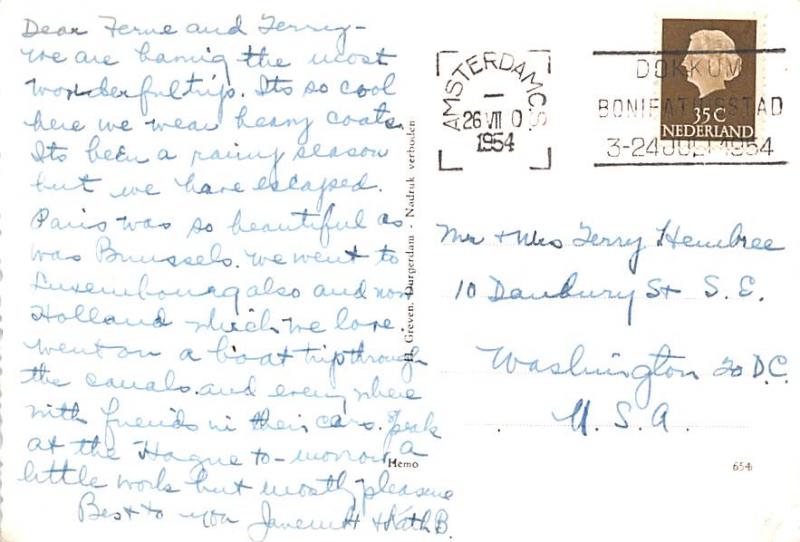 Dear Ferne and Terry-
We are having the most
wonderful trip. Its so cool
here we wear heavy coats.
Its been a rainy season
but we have escaped.
Paris was so beautiful as
was Brussels. We went to
Luxembourg also and now
Holland which we love.
Went on a boat trip through
the canals. and every where
with friends in their cars. Speak
at the Hague to-morrow a
little work but mostly pleasure
Best to you & Kath B.
H. Greven, Durgerdam - Nadruk verboden
Hemo
AMSTERDAM C.S.
26 VII 0
1954
DOKKUM
BONIFATIUSSTAD
3-24 JULI 1954
35 C
NEDERLAND
Mr & Mrs Terry Hembree
10 Danbury St S.E.
Washington 20 D.C.
U.S.A.
654